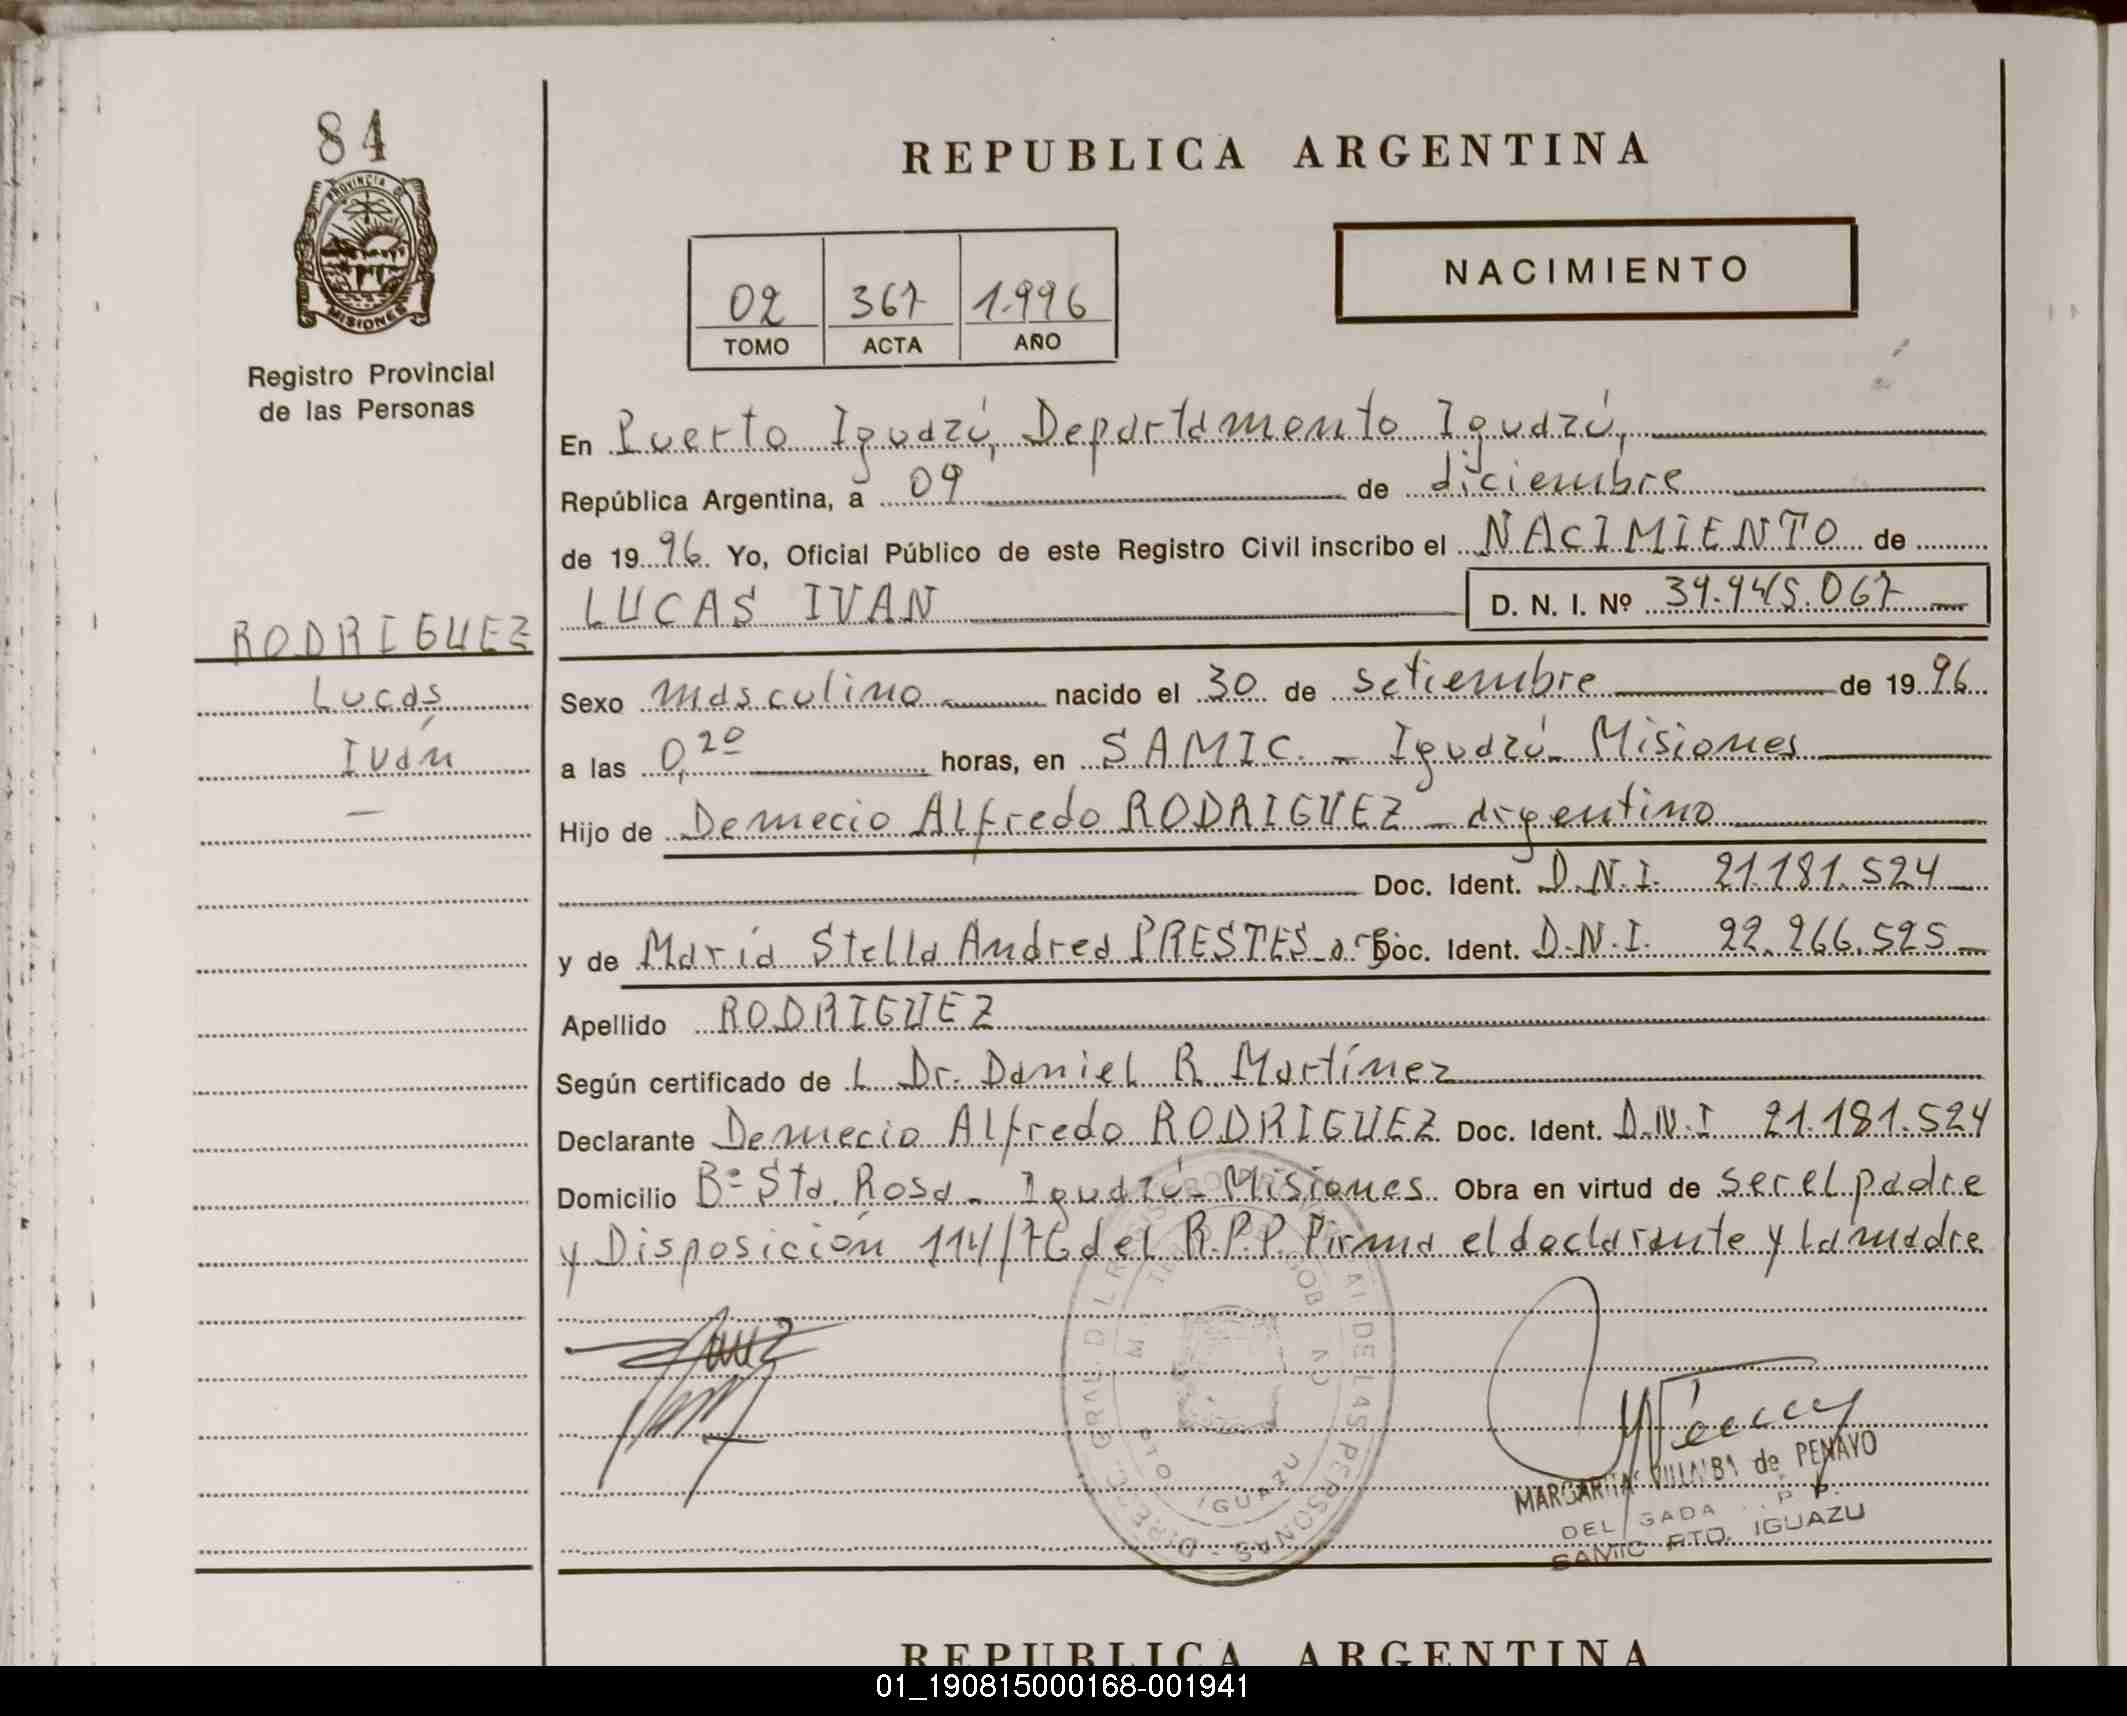 84
PROVINCIA DE
MISIONES
Registro Provincial
de las Personas
REPUBLICA ARGENTINA
02 367 1.996
TOMO ACTA AÑO
NACIMIENTO
En Puerto Iguazú, Departamento Iguazú,
República Argentina, a 09 de diciembre
de 19 96 Yo, Oficial Público de este Registro Civil inscribo el NACIMIENTO de
LUCAS IVAN D. N. I. Nº 39.945.067
RODRIGUEZ
Lucas
Iván
Sexo masculino nacido el 30 de setiembre de 19 96
a las 0,20 horas, en SAMIC. - Iguazú - Misiones
Hijo de Demecio Alfredo RODRIGUEZ - argentino
Doc. Ident. D.N.I. 21.181.524
y de María Stella Andrea PRESTES - arg Doc. Ident. D.N.I. 22.266.525
Apellido RODRIGUEZ
Según certificado de L Dr. Daniel R. Martínez
Declarante Demecio Alfredo RODRIGUEZ Doc. Ident. D.N.I 21.181.524
Domicilio Bº Sta. Rosa - Iguazú - Misiones Obra en virtud de ser el padre
y Disposición 114/76 del R.P.P. Firma el declarante y la madre
DIREC. GRAL. DEL REGISTRO PROVINCIAL DE LAS PERSONAS
PTO IGUAZU
MARGARITA VILLALBA de PENAYO
SAMIC PTO. IGUAZU
REPUBLICA ARGENTINA
01_190815000168-001941